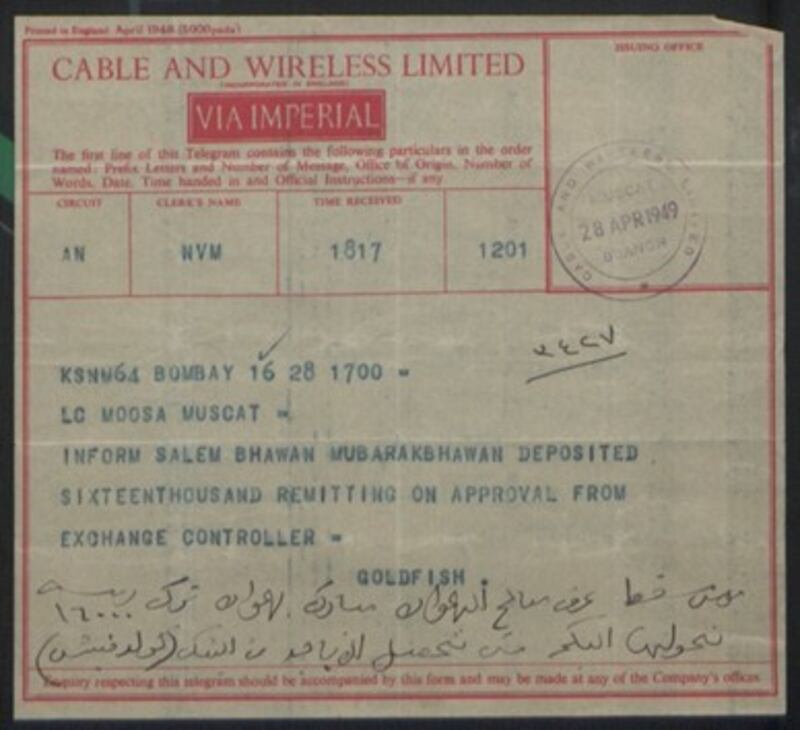 Printed in England. April 1948 (5000pads)
CABLE AND WIRELESS LIMITED
(INCORPORATED IN ENGLAND)
VIA IMPERIAL
The first line of this Telegram contains the following particulars in the order
named: Prefix Letters and Number of Message, Office of Origin, Number of
Words, Date, Time handed in and Official Instructions—if any.
ISSUING OFFICE
CABLE AND WIRELESS LIMITED
MUSCAT
28 APR 1949
BRANCH
CIRCUIT CLERK'S NAME TIME RECEIVED
AN NVM 1817 1201
KSNM64 BOMBAY 16 28 1700 =
LC MOOSA MUSCAT =
INFORM SALEM BHAWAN MUBARAKBHAWAN DEPOSITED
SIXTEENTHOUSAND REMITTING ON APPROVAL FROM
EXCHANGE CONTROLLER =
GOLDFISH
عرف سالم بهوان مبارك بهوان ترك
١٦٠٠٠
نحولها اليكم متى نتحصل من البنك (كولدفيش)
Enquiry respecting this telegram should be accompanied by this form and may be made at any of the Company's offices